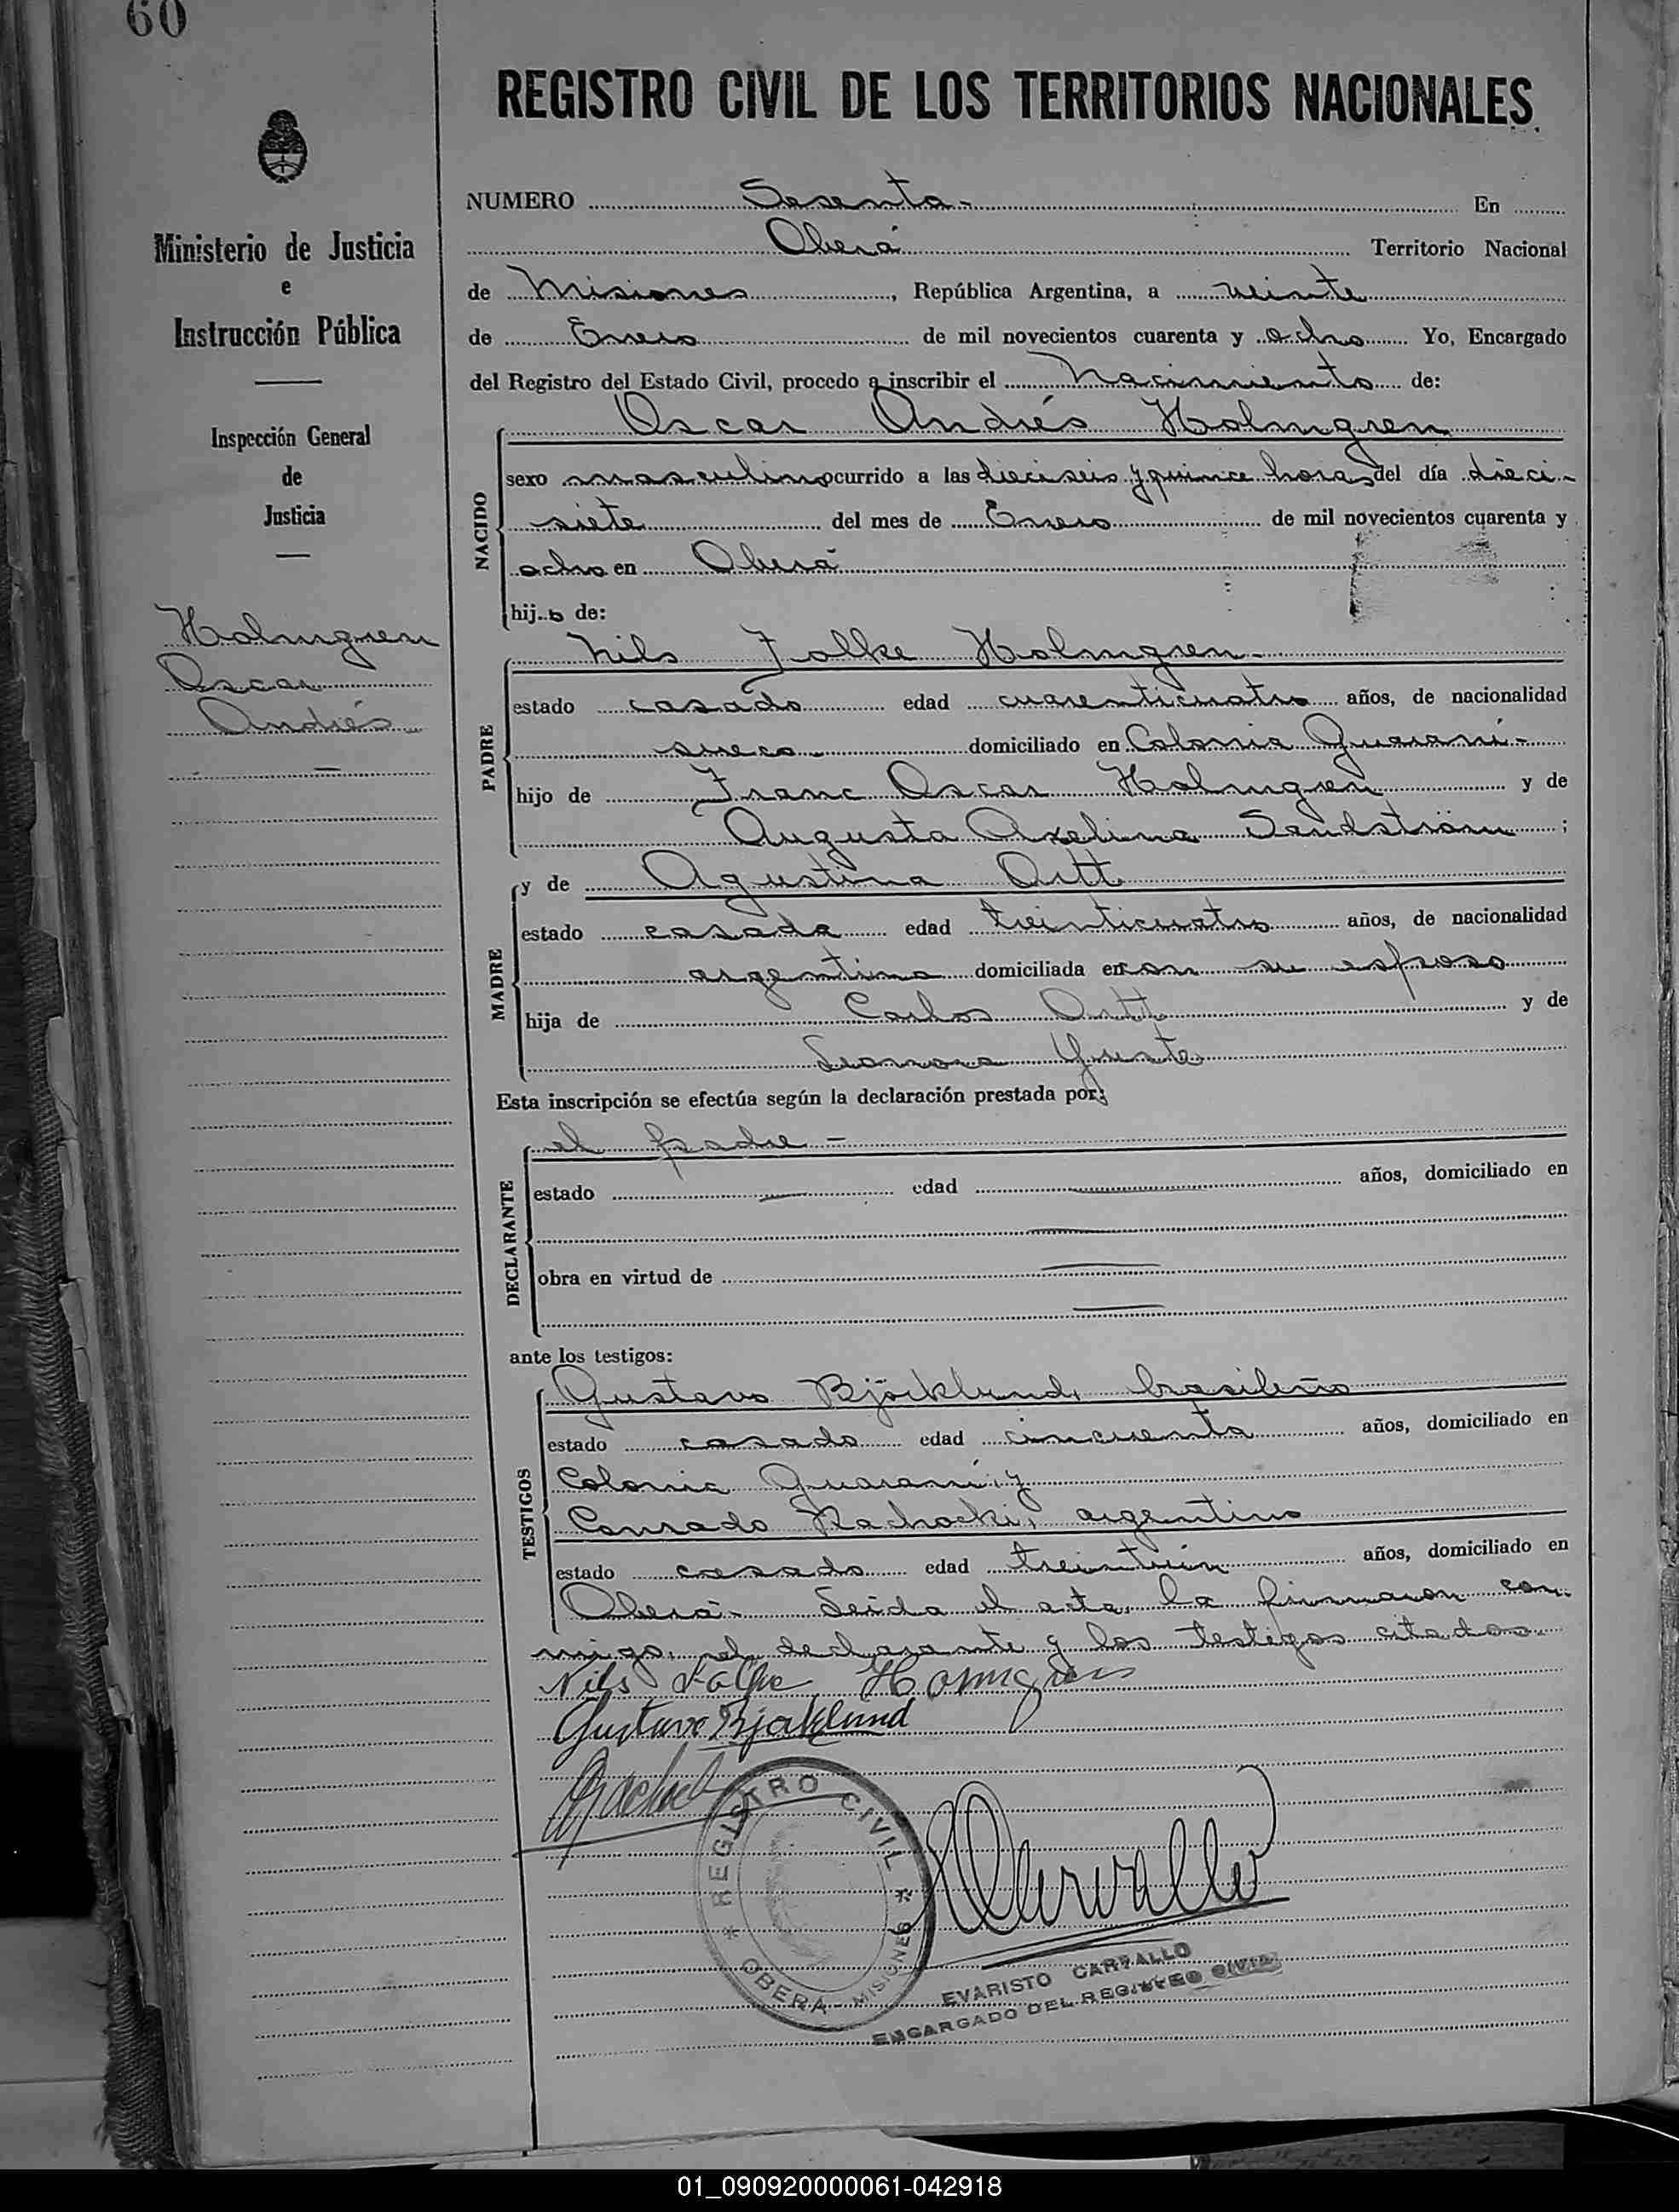 60
REGISTRO CIVIL DE LOS TERRITORIOS NACIONALES.
Ministerio de Justicia
e
Instrucción Pública
Inspección General
de
Justicia
Holmgren
Oscar
Andrés
NUMERO Sesenta - En
Oberá Territorio Nacional
de Misiones, República Argentina, a veinte
de Enero de mil novecientos cuarenta y ocho Yo, Encargado
del Registro del Estado Civil, procedo a inscribir el Nacimiento de:
Oscar Andrés Holmgren
NACIDO
sexo masculino ocurrido a las dieciseis y quince horas del día dieci-
siete del mes de Enero de mil novecientos cuarenta y
ocho en Oberá
hijo de:
Nils Folke Holmgren -
PADRE
estado casado edad cuarenticuatro años, de nacionalidad
sueco domiciliado en Colonia Guaraní -
hijo de Franc Oscar Holmgren y de
Augusta Axelina Sandström ;
MADRE
y de Agustina Ortt
estado casada edad treinticuatro años, de nacionalidad
argentina domiciliada en con su esposo
hija de Carlos Ortt y de
Leonora
Esta inscripción se efectúa según la declaración prestada por:
DECLARANTE
el padre -
estado edad años, domiciliado en
obra en virtud de
ante los testigos:
TESTIGOS
Gustavo Björklund, brasileño
estado casado edad cincuenta años, domiciliado en
Colonia Guaraní y
Conrado Rachocki, argentino
estado casado edad treintiún años, domiciliado en
Oberá - Leída el acta, la firmaron con-
migo, el declarante y los testigos citados.
Nils Folke Holmgren
Gustavo Bjorklund
REGISTRO CIVIL
OBERA - MISIONES
EVARISTO CARVALLO
ENCARGADO DEL REGISTRO CIVIL
01_090920000061-042918